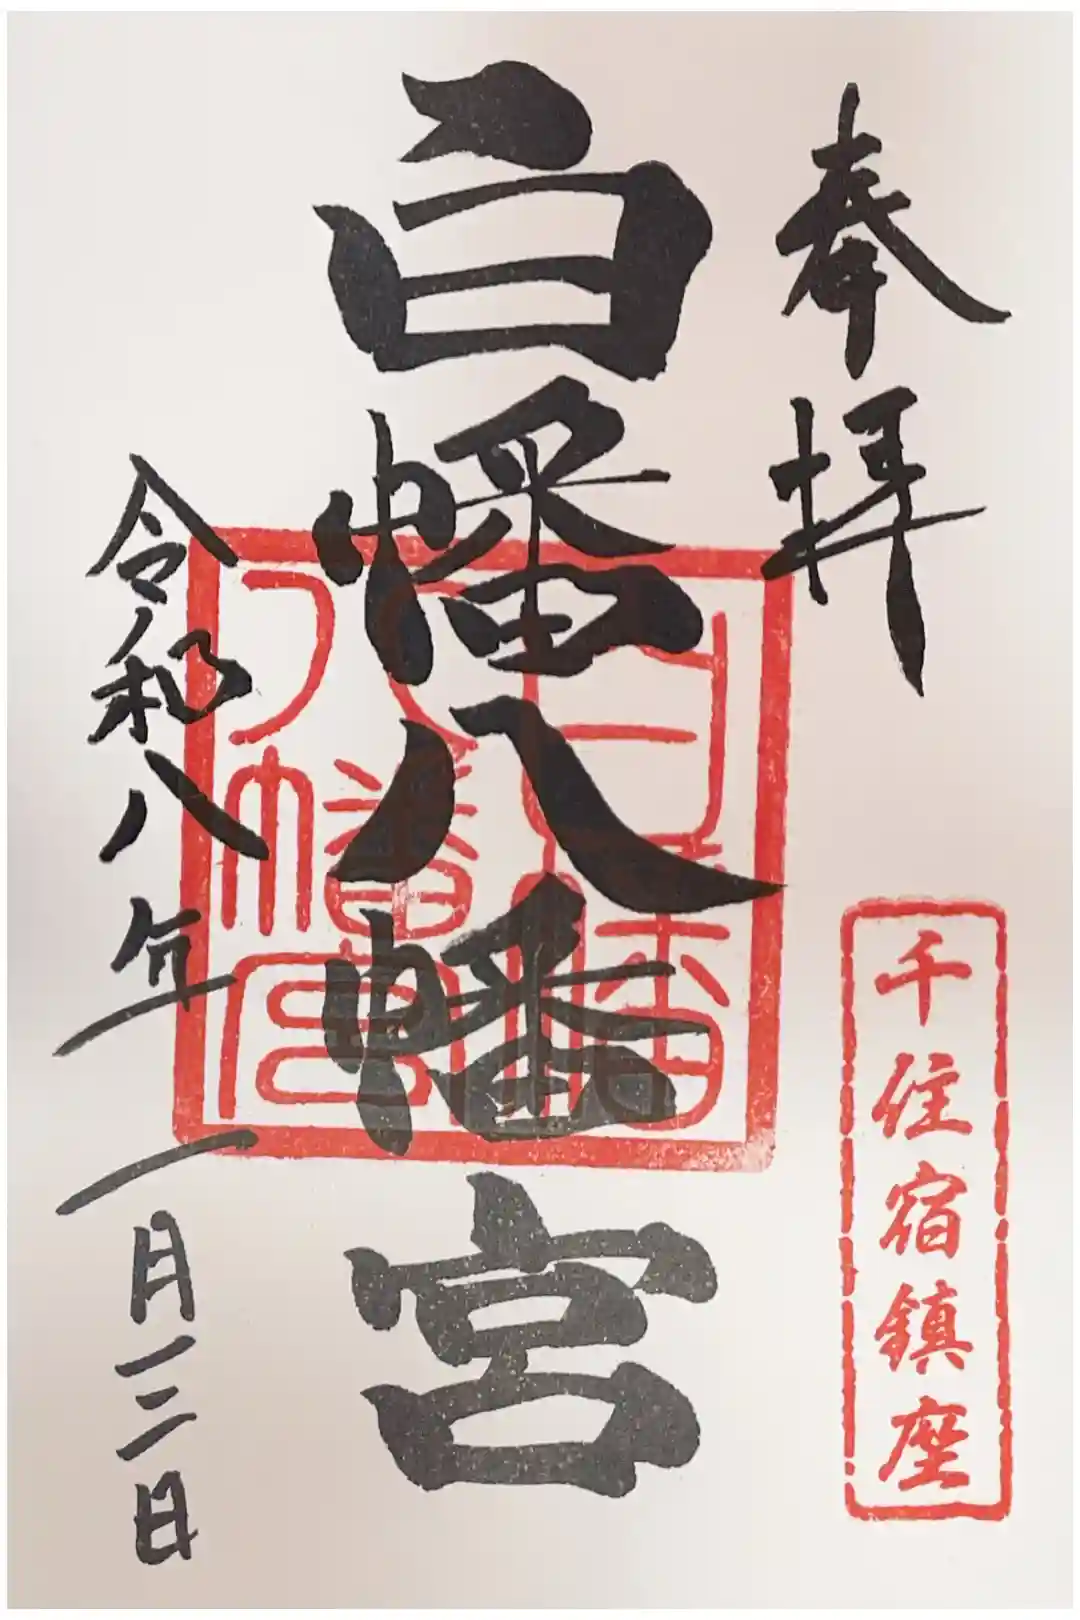 奉拝
千住宿鎮座
白幡八幡宮
白幡
八幡宮
令和八年一月二日